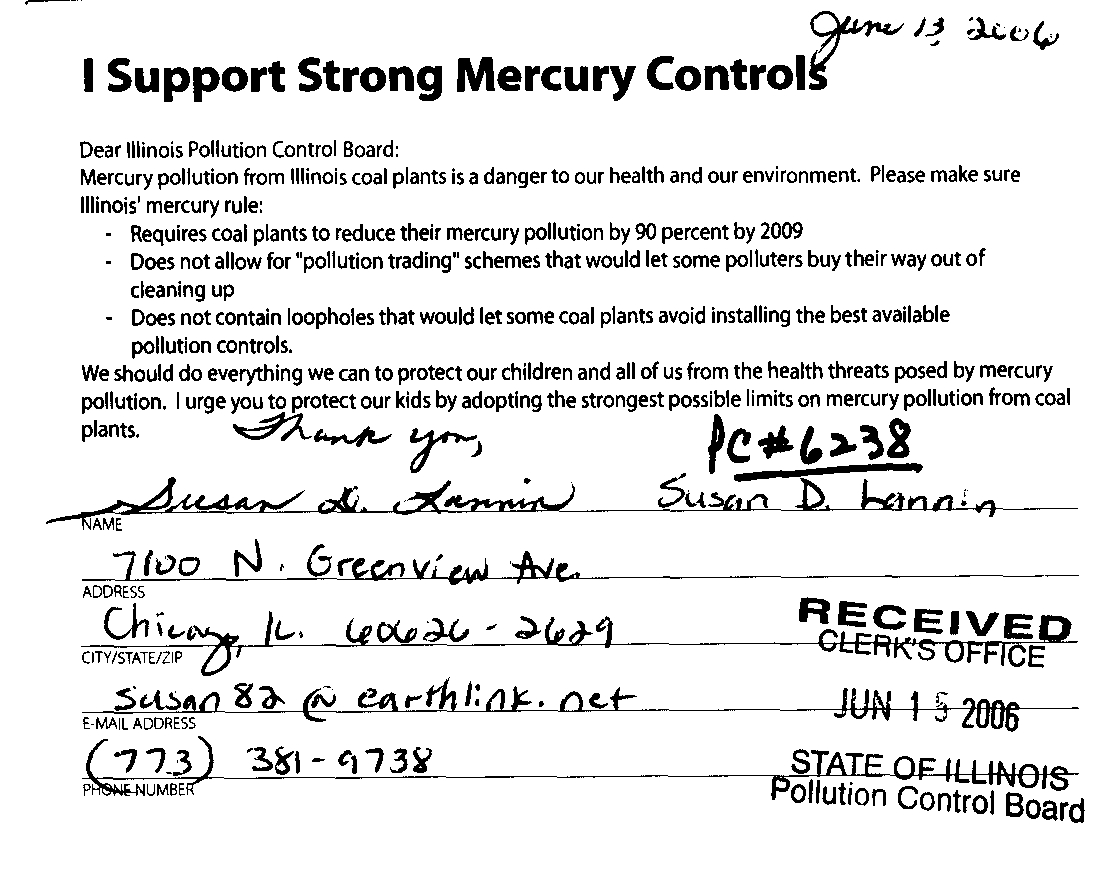 June 13, 2006
I Support Strong Mercury Controls
Dear Illinois Pollution Control Board:
Mercury pollution from Illinois coal plants is a danger to our health and our environment. Please make sure
Illinois' mercury rule:
- Requires coal plants to reduce their mercury pollution by 90 percent by 2009
- Does not allow for "pollution trading" schemes that would let some polluters buy their way out of
cleaning up
- Does not contain loopholes that would let some coal plants avoid installing the best available
pollution controls.
We should do everything we can to protect our children and all of us from the health threats posed by mercury
pollution. I urge you to protect our kids by adopting the strongest possible limits on mercury pollution from coal
plants.
Thank you,
PC #6238
Susan D. Lannin Susan D. Lannin
NAME
7100 N. Greenview Ave.
ADDRESS
Chicago, IL. 60626-2629
CITY/STATE/ZIP
RECEIVED
CLERK'S OFFICE
susan82@earthlink.net
E-MAIL ADDRESS
JUN 15 2006
(773) 381-9738
PHONE NUMBER
STATE OF ILLINOIS
Pollution Control Board